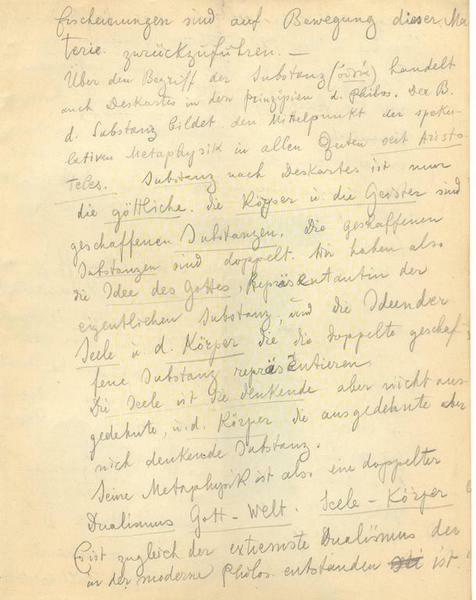 Erscheinungen sind auf Bewegung dieser Ma
terie. zurückzuführen. —
Über den Begriff der Substanz (οὐσία) handelt
auch Deskartes in den Prinzipien d. Philos. Der B.
d. Substanz bildet den Mittelpunkt der speku-
lativen Metaphysik in allen Zeiten seit Aristo-
teles. Substanz nach Deskartes ist nur
die göttliche. Die Körper u. die Geister sind
geschaffenen Substanzen. Die geschaffenen
Substanzen sind doppelt. Wir haben also
die Idee des Gottes, Repräsentantin der
eigentlichen Substanz, und die Ideen der
Seele u. d. Körper die die doppelte geschaf-
fene Substanz repräsentieren.
Die Seele ist die denkende aber nicht aus-
gedehnte, u. d. Körper die ausgedehnte aber
nich denkende Substanz.
Seine Metaphysik ist also ein doppelter
Dualismus Gott – Welt. Seele – Körper
Er ist zugleich der extremste Dualismus der
in der moderne Philos. entstanden ist.